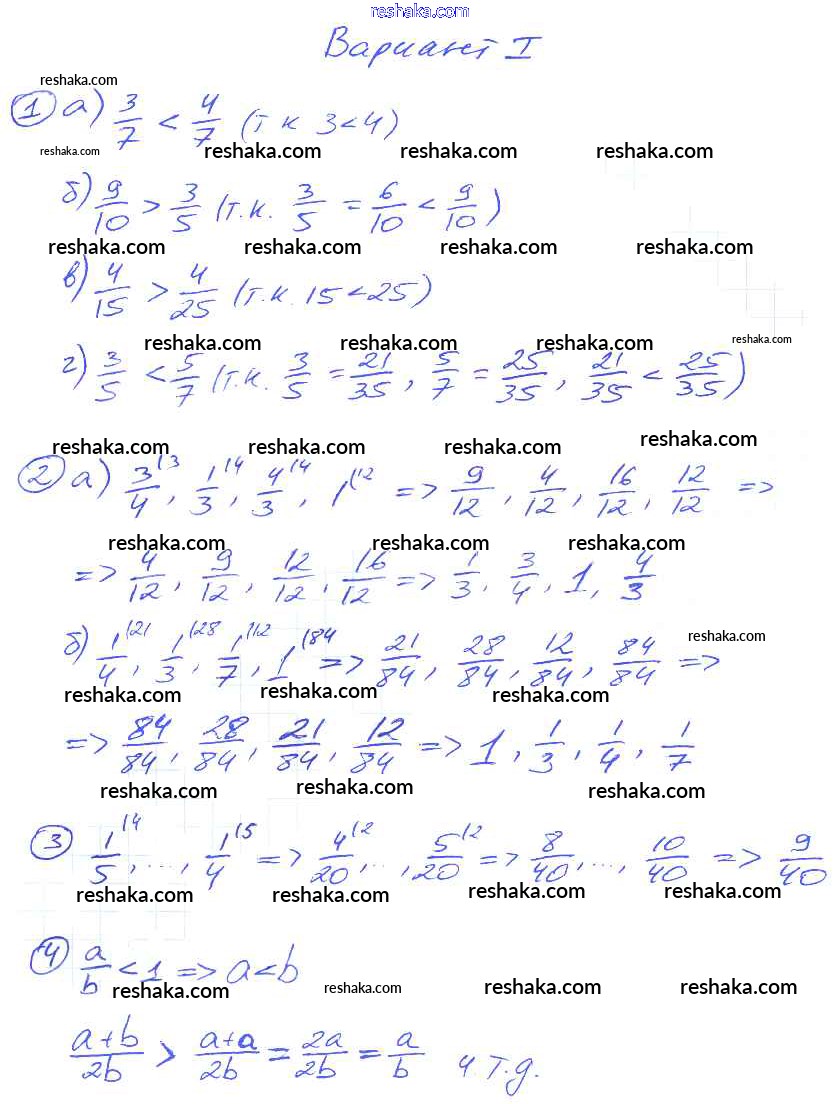 reshaka.com
Вариант I
reshaka.com
① а) 3/7 < 4/7 (т к 3<4)
reshaka.com reshaka.com reshaka.com reshaka.com
б) 9/10 > 3/5 (т.к. 3/5 = 6/10 < 9/10)
reshaka.com reshaka.com reshaka.com reshaka.com
в) 4/15 > 4/25 (т.к. 15<25)
reshaka.com reshaka.com reshaka.com reshaka.com
г) 3/5 < 5/7 (т.к. 3/5 = 21/35, 5/7 = 25/35, 21/35 < 25/35)
reshaka.com reshaka.com reshaka.com reshaka.com
② а) 3/4 (3, 1/3 (4, 4/3 (4, 1 (12 => 9/12, 4/12, 16/12, 12/12 =>
reshaka.com reshaka.com reshaka.com
=> 4/12, 9/12, 12/12, 16/12 => 1/3, 3/4, 1, 4/3
б) 1/4 (21, 1/3 (28, 1/7 (12, 1 (84 => 21/84, 28/84, 12/84, 84/84 =>
reshaka.com
reshaka.com reshaka.com reshaka.com
=> 84/84, 28/84, 21/84, 12/84 => 1, 1/3, 1/4, 1/7
reshaka.com reshaka.com reshaka.com
③ 1/5 (4, ..., 1/4 (5 => 4/20 (2, ..., 5/20 (2 => 8/40, ..., 10/40 => 9/40
reshaka.com reshaka.com reshaka.com reshaka.com
④ a/b < 1 => a<b
reshaka.com reshaka.com reshaka.com reshaka.com
a+b/2b > a+a/2b = 2a/2b = a/b ч.т.д.